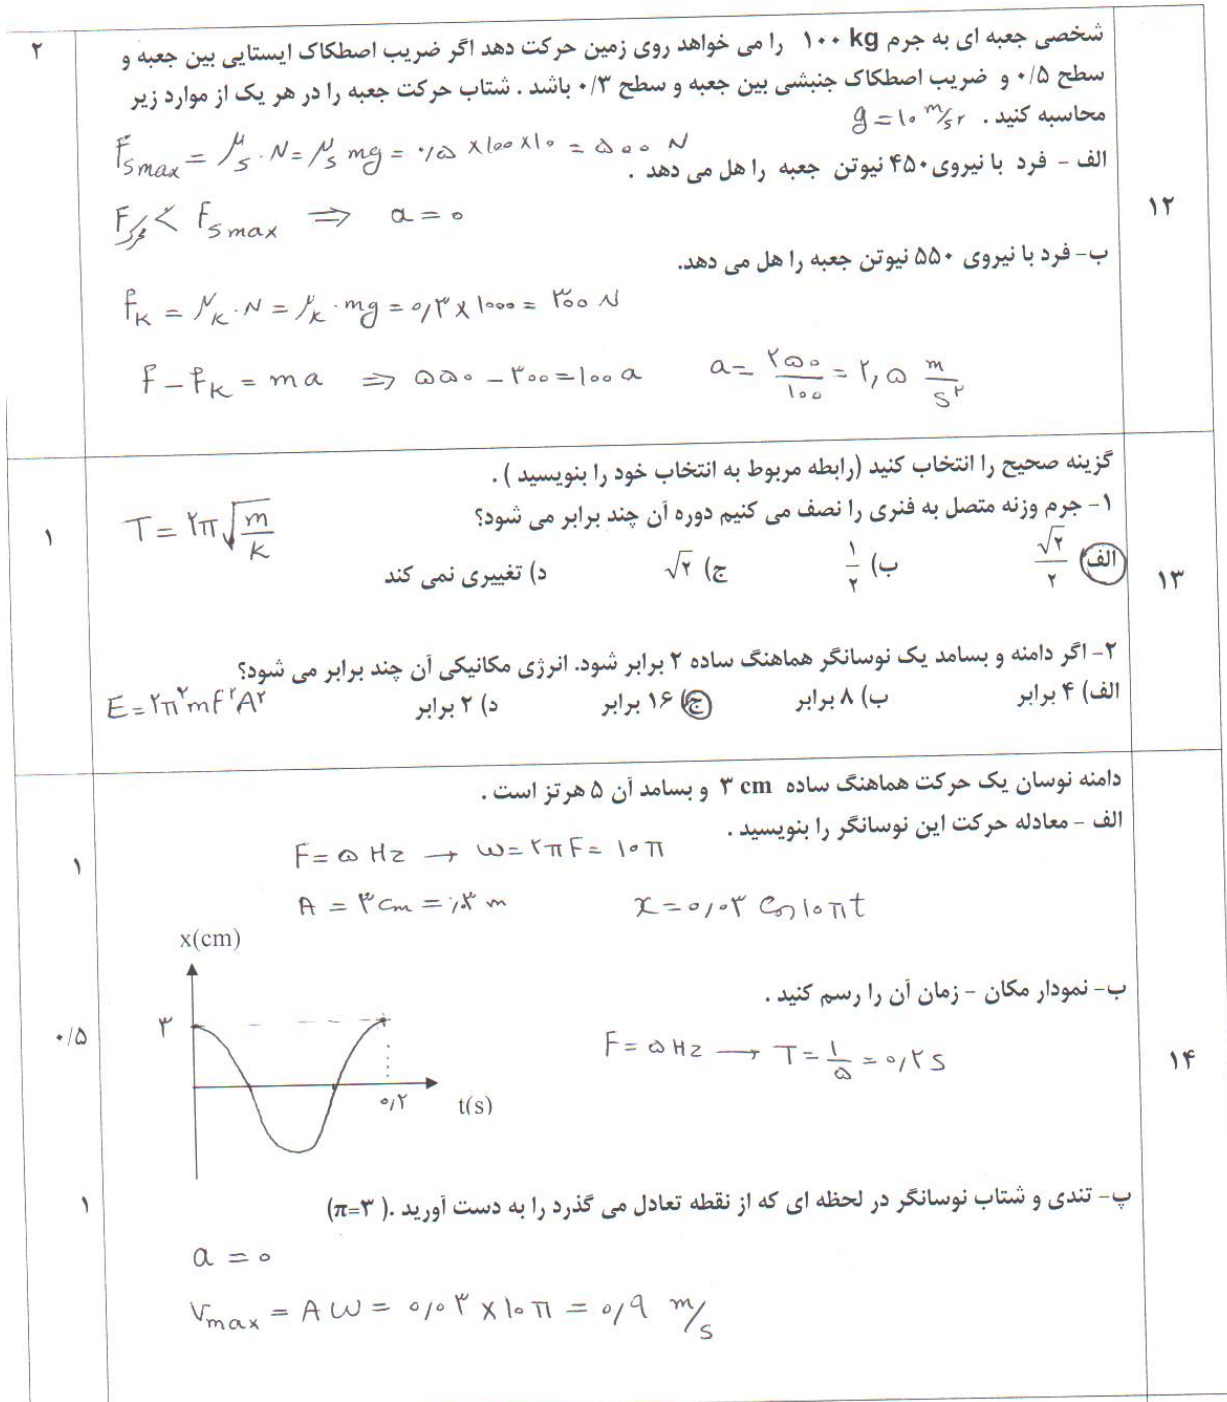 ۲
شخصی جعبه ای به جرم ۱۰۰ kg را می خواهد روی زمین حرکت دهد اگر ضریب اصطکاک ایستایی بین جعبه و
سطح ۰/۵ و ضریب اصطکاک جنبشی بین جعبه و سطح ۰/۳ باشد . شتاب حرکت جعبه را در هر یک از موارد زیر
محاسبه کنید . g = ۱۰ m/s۲
fsmax = μs . N = μs mg = ۰/۵ × ۱۰۰ × ۱۰ = ۵۰۰ N
الف - فرد با نیروی ۴۵۰ نیوتن جعبه را هل می دهد .
۱۲
F محرک < fsmax ⇒ a = ۰
ب- فرد با نیروی ۵۵۰ نیوتن جعبه را هل می دهد.
fK = μK . N = μK . mg = ۰,۳ × ۱۰۰۰ = ۳۰۰ N
F - fK = ma ⇒ ۵۵۰ - ۳۰۰ = ۱۰۰ a a = ۲۵۰/۱۰۰ = ۲,۵ m/s۲
گزینه صحیح را انتخاب کنید (رابطه مربوط به انتخاب خود را بنویسید ) .
۱- جرم وزنه متصل به فنری را نصف می کنیم دوره آن چند برابر می شود؟
T = ۲π√(m/K)
۱
۱۳
الف) √۲/۲ ب) ۱/۲ ج) √۲ د) تغییری نمی کند
۲- اگر دامنه و بسامد یک نوسانگر هماهنگ ساده ۲ برابر شود. انرژی مکانیکی آن چند برابر می شود؟
الف) ۴ برابر ب) ۸ برابر ج) ۱۶ برابر د) ۲ برابر
E = ۲π۲mf۲A۲
دامنه نوسان یک حرکت هماهنگ ساده ۳ cm و بسامد آن ۵ هرتز است .
الف - معادله حرکت این نوسانگر را بنویسید .
۱
F = ۵ Hz → ω = ۲πF = ۱۰π
A = ۳ cm = ,۰۳ m x = ۰,۰۳ Cos ۱۰πt
x(cm)
ب- نمودار مکان - زمان آن را رسم کنید .
۳
۰/۵
F = ۵ Hz → T = ۱/۵ = ۰,۲ s
۱۴
۰,۲
t(s)
پ- تندی و شتاب نوسانگر در لحظه ای که از نقطه تعادل می گذرد را به دست آورید .( π=۳)
۱
a = ۰
Vmax = Aω = ۰,۰۳ × ۱۰π = ۰,۹ m/s